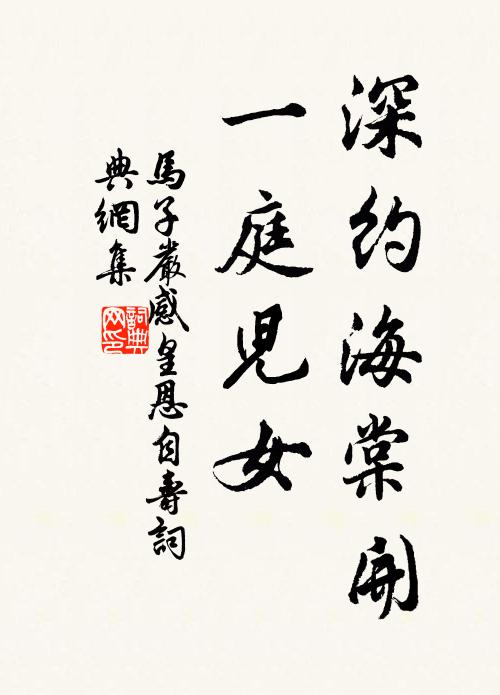 深約海棠開
一庭児女
馬子嚴感皇恩自壽詞
典網集
詞典网印